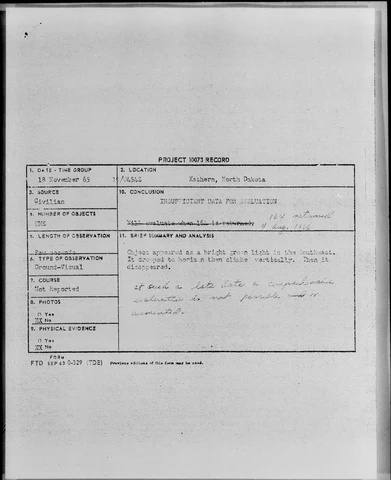 PROJECT 10073 RECORD
1. DATE - TIME GROUP
18 November 65
2. LOCATION
Kathern, North Dakota
3. SOURCE
Civilian
10. CONCLUSION
INSUFFICIENT DATA FOR EVALUATION
4. NUMBER OF OBJECTS
ONE
Will evaluate when 164 is returned.
164 returned
9 Aug. 1966
5. LENGTH OF OBSERVATION
Few seconds
11. BRIEF SUMMARY AND ANALYSIS
Object appeared as a bright green light in the Southeast.
It dropped to horizon then climbed vertically. Then it
disappeared.
6. TYPE OF OBSERVATION
Ground-Visual
7. COURSE
Not Reported
At such a late date a comprehensive
evaluation is not possible
8. PHOTOS
□ Yes
XX No
9. PHYSICAL EVIDENCE
□ Yes
XX No
FORM
FTD SEP 63 0-329 (TDE) Previous editions of this form may be used.